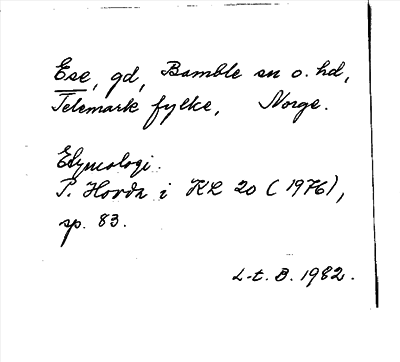 Ese, gd, Bamble sn o. hd,
Telemark fylke, Norge.
Etymologi.
P. Hovda i KL 20 (1976),
sp. 83.
L-t. B. 1982.